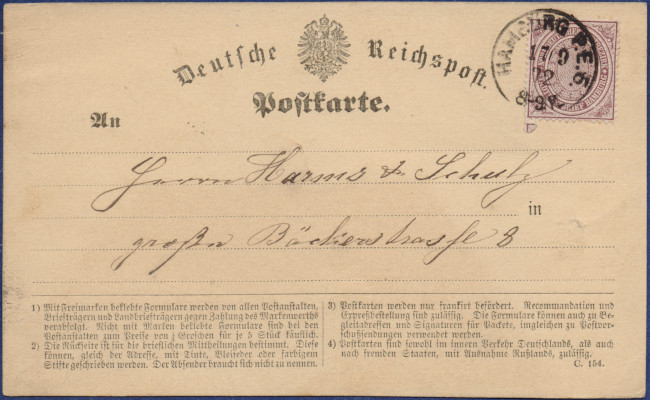 Deutsche Reichspost.
HAMBURG P.E.6.
Postkarte.
An
Herrn Harms & Schulz
in
großen Bäckerstrasse 8
1) Mit Freimarken beklebte Formulare werden von allen Postanstalten,
Briefträgern und Landbriefträgern gegen Zahlung des Markenwerths
verabfolgt. Nicht mit Marken beklebte Formulare sind bei den
Postanstalten zum Preise von ¼ Groschen für je 5 Stück käuflich.
2) Die Rückseite ist für die brieflichen Mittheilungen bestimmt. Diese
können, gleich der Adresse, mit Tinte, Bleifeder oder farbigem
Stifte geschrieben werden. Der Absender braucht sich nicht zu nennen.
3) Postkarten werden nur frankirt befördert. Recommandation und
Expreßbestellung sind zulässig. Die Formulare können auch zu Be-
gleitadressen und Signaturen für Packete, ingleichen zu Postvor-
schußsendungen verwendet werden.
4) Postkarten sind sowohl im innern Verkehr Deutschlands, als auch
nach fremden Staaten, mit Ausnahme Rußlands, zulässig.
C. 154.